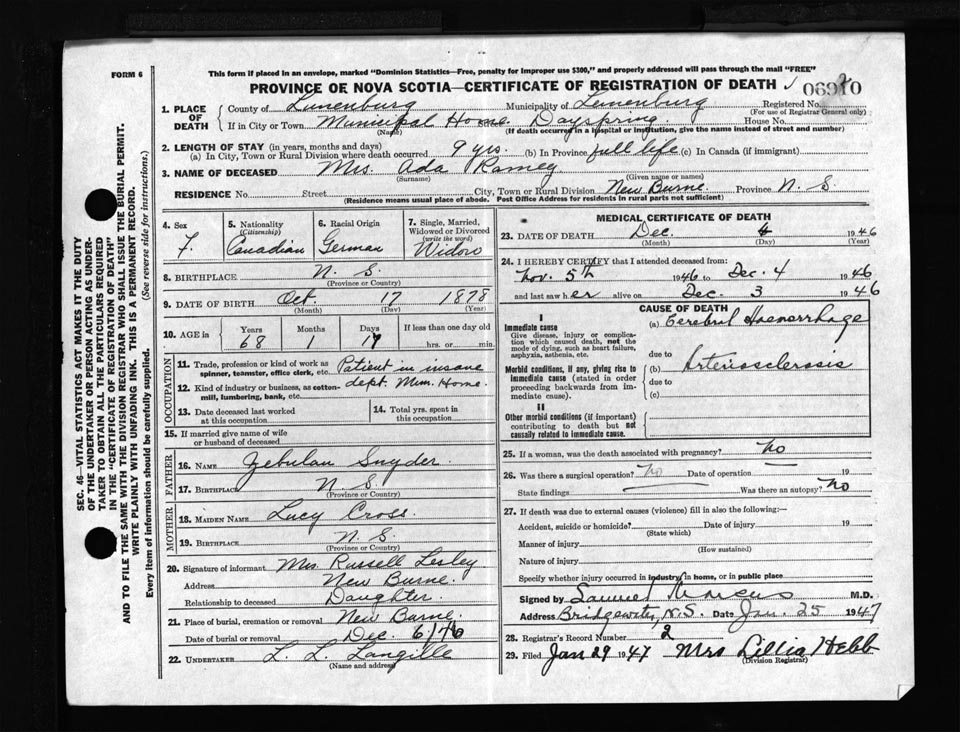 FORM 6
This form if placed in an envelope, marked "Dominion Statistics—Free, penalty for improper use $300," and properly addressed will pass through the mail "FREE"
PROVINCE OF NOVA SCOTIA—CERTIFICATE OF REGISTRATION OF DEATH
1. PLACE OF DEATH County of Lunenburg Municipality of Lunenburg Registered No.
(For use of Registrar General only)
If in City or Town Municipal Home Dayspring House No.
(Name) (If death occurred in a hospital or institution, give the name instead of street and number)
2. LENGTH OF STAY (in years, months and days)
(a) In City, Town or Rural Division where death occurred 9 yrs. (b) In Province full life (c) In Canada (if immigrant)
3. NAME OF DECEASED Mrs. Ada Ramey
(Surname) (Given name or names)
RESIDENCE No. Street City, Town or Rural Division New Burne. Province N. S.
(Residence means usual place of abode. Post Office Address for residents in rural parts not sufficient)
4. Sex F.
5. Nationality (Citizenship) Canadian
6. Racial Origin German
7. Single, Married, Widowed or Divorced (write the word) Widow
8. BIRTHPLACE N. S.
(Province or Country)
9. DATE OF BIRTH Oct. 17 1878
(Month) (Day) (Year)
10. AGE in Years 68 Months 1 Days 17 If less than one day old hrs. or min.
OCCUPATION
11. Trade, profession or kind of work as spinner, teamster, office clerk, etc. Patient in insane
12. Kind of industry or business, as cotton-mill, lumbering, bank, etc. dept. Mun. Home.
13. Date deceased last worked at this occupation
14. Total yrs. spent in this occupation
15. If married give name of wife or husband of deceased
FATHER
16. NAME Zebulan Snyder.
17. BIRTHPLACE N. S.
(Province or Country)
MOTHER
18. MAIDEN NAME Lucy Cross.
19. BIRTHPLACE N. S.
(Province or Country)
20. Signature of informant Mrs. Russell Lesley
Address New Burne.
Relationship to deceased Daughter.
21. Place of burial, cremation or removal New Burne.
Date of burial or removal Dec. 6/46
22. UNDERTAKER L. L. Langille
(Name and address)
MEDICAL CERTIFICATE OF DEATH
23. DATE OF DEATH Dec. 4 1946
(Month) (Day) (Year)
24. I HEREBY CERTIFY that I attended deceased from:
Nov. 5th 1946 to Dec. 4 1946
and last saw her alive on Dec. 3 1946
CAUSE OF DEATH
I
Immediate cause
Give disease, injury or complication which caused death, not the mode of dying, such as heart failure, asphyxia, asthenia, etc.
(a) Cerebral Haemorrhage
due to
Morbid conditions, if any, giving rise to immediate cause (stated in order proceeding backwards from immediate cause).
(b) Arteriosclerosis
due to
(c)
II
Other morbid conditions (if important) contributing to death but not causally related to immediate cause.
25. If a woman, was the death associated with pregnancy? No
26. Was there a surgical operation? No Date of operation 19
State findings Was there an autopsy? No
27. If death was due to external causes (violence) fill in also the following:—
Accident, suicide or homicide? Date of injury 19
(State which)
Manner of injury
(How sustained)
Nature of injury
Specify whether injury occurred in industry, in home, or in public place
Signed by Samuel Marcus M.D.
Address Bridgewater, N.S. Date Jan. 25 1947
28. Registrar's Record Number 2
29. Filed Jan 29 1947 Mrs Lillia Hebb
(Division Registrar)
SEC. 46—VITAL STATISTICS ACT MAKES IT THE DUTY
OF THE UNDERTAKER OR PERSON ACTING AS UNDER-
TAKER TO OBTAIN ALL THE PARTICULARS REQUIRED
IN THE "CERTIFICATE OF REGISTRATION OF DEATH"
AND TO FILE THE SAME WITH THE DIVISION REGISTRAR WHO SHALL ISSUE THE BURIAL PERMIT.
WRITE PLAINLY WITH UNFADING INK. THIS IS A PERMANENT RECORD.
Every item of information should be carefully supplied. (See reverse side for instructions.)